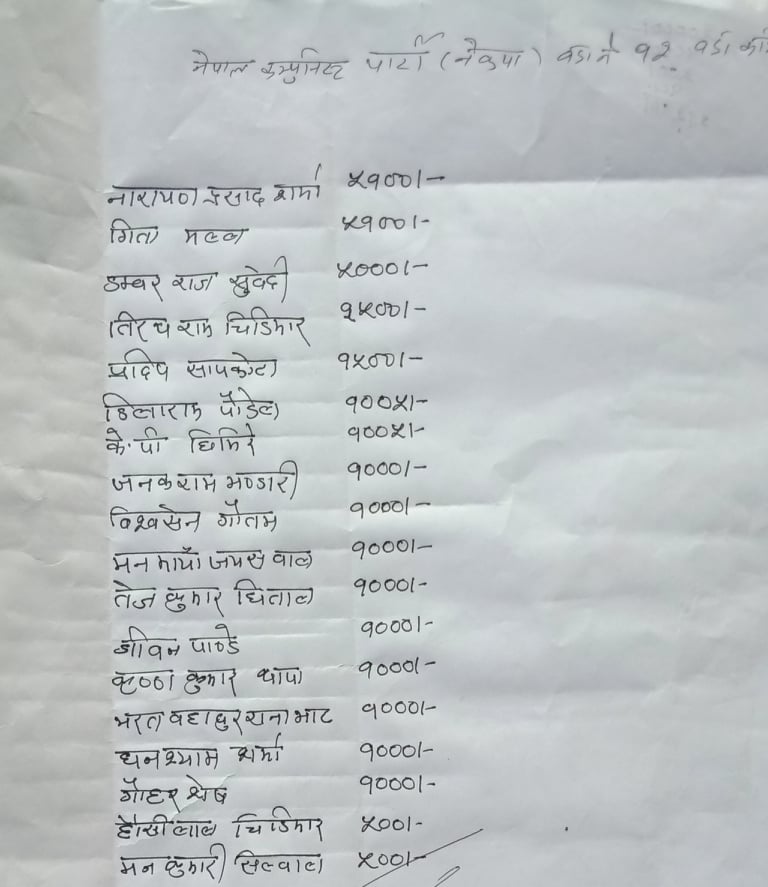 नेपाल कम्युनिष्ट पार्टी (नेकपा) वडा नं १२ वडा
नारायण प्रसाद शर्मा ५१००।-
गिता मल्ल ५१००।-
डम्बर राज सुवेदी ५०००।-
तिरथ राम चिडिमार १५००।-
प्रदिप सापकोटा १५००।-
डिलाराम पौडेल १००५।-
के.पी घिमिरे १००५।-
जनकराम भण्डारी १०००।-
विश्वसेन गौतम १०००।-
मन माया जयसवाल १०००।-
तेज कुमार धिताल १०००।-
जीवन पाण्डे १०००।-
कृष्ण कुमार थापा १०००।-
भरत वहादुर रानाभाट १०००।-
घनश्याम शर्मा १०००।-
गौहर शेष १०००।-
हौसीलाल चिडिमार ५००।-
मन कुमारी सिलवाल ५००।-